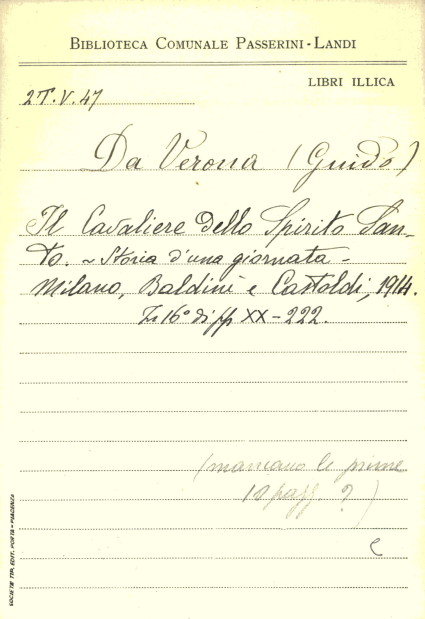 BIBLIOTECA COMUNALE PASSERINI-LANDI
LIBRI ILLICA
2T.V.47
Da Verona (Guido)
Il Cavaliere dello Spirito San-
to. ~ Storia d'una giornata -
Milano, Baldini e Castoldi, 1914.
In 16° di pp XX-222.
(mancano le prime
10 pagg. ?)
c
SOCIETÀ TIP. EDIT. PORTA - PIACENZA